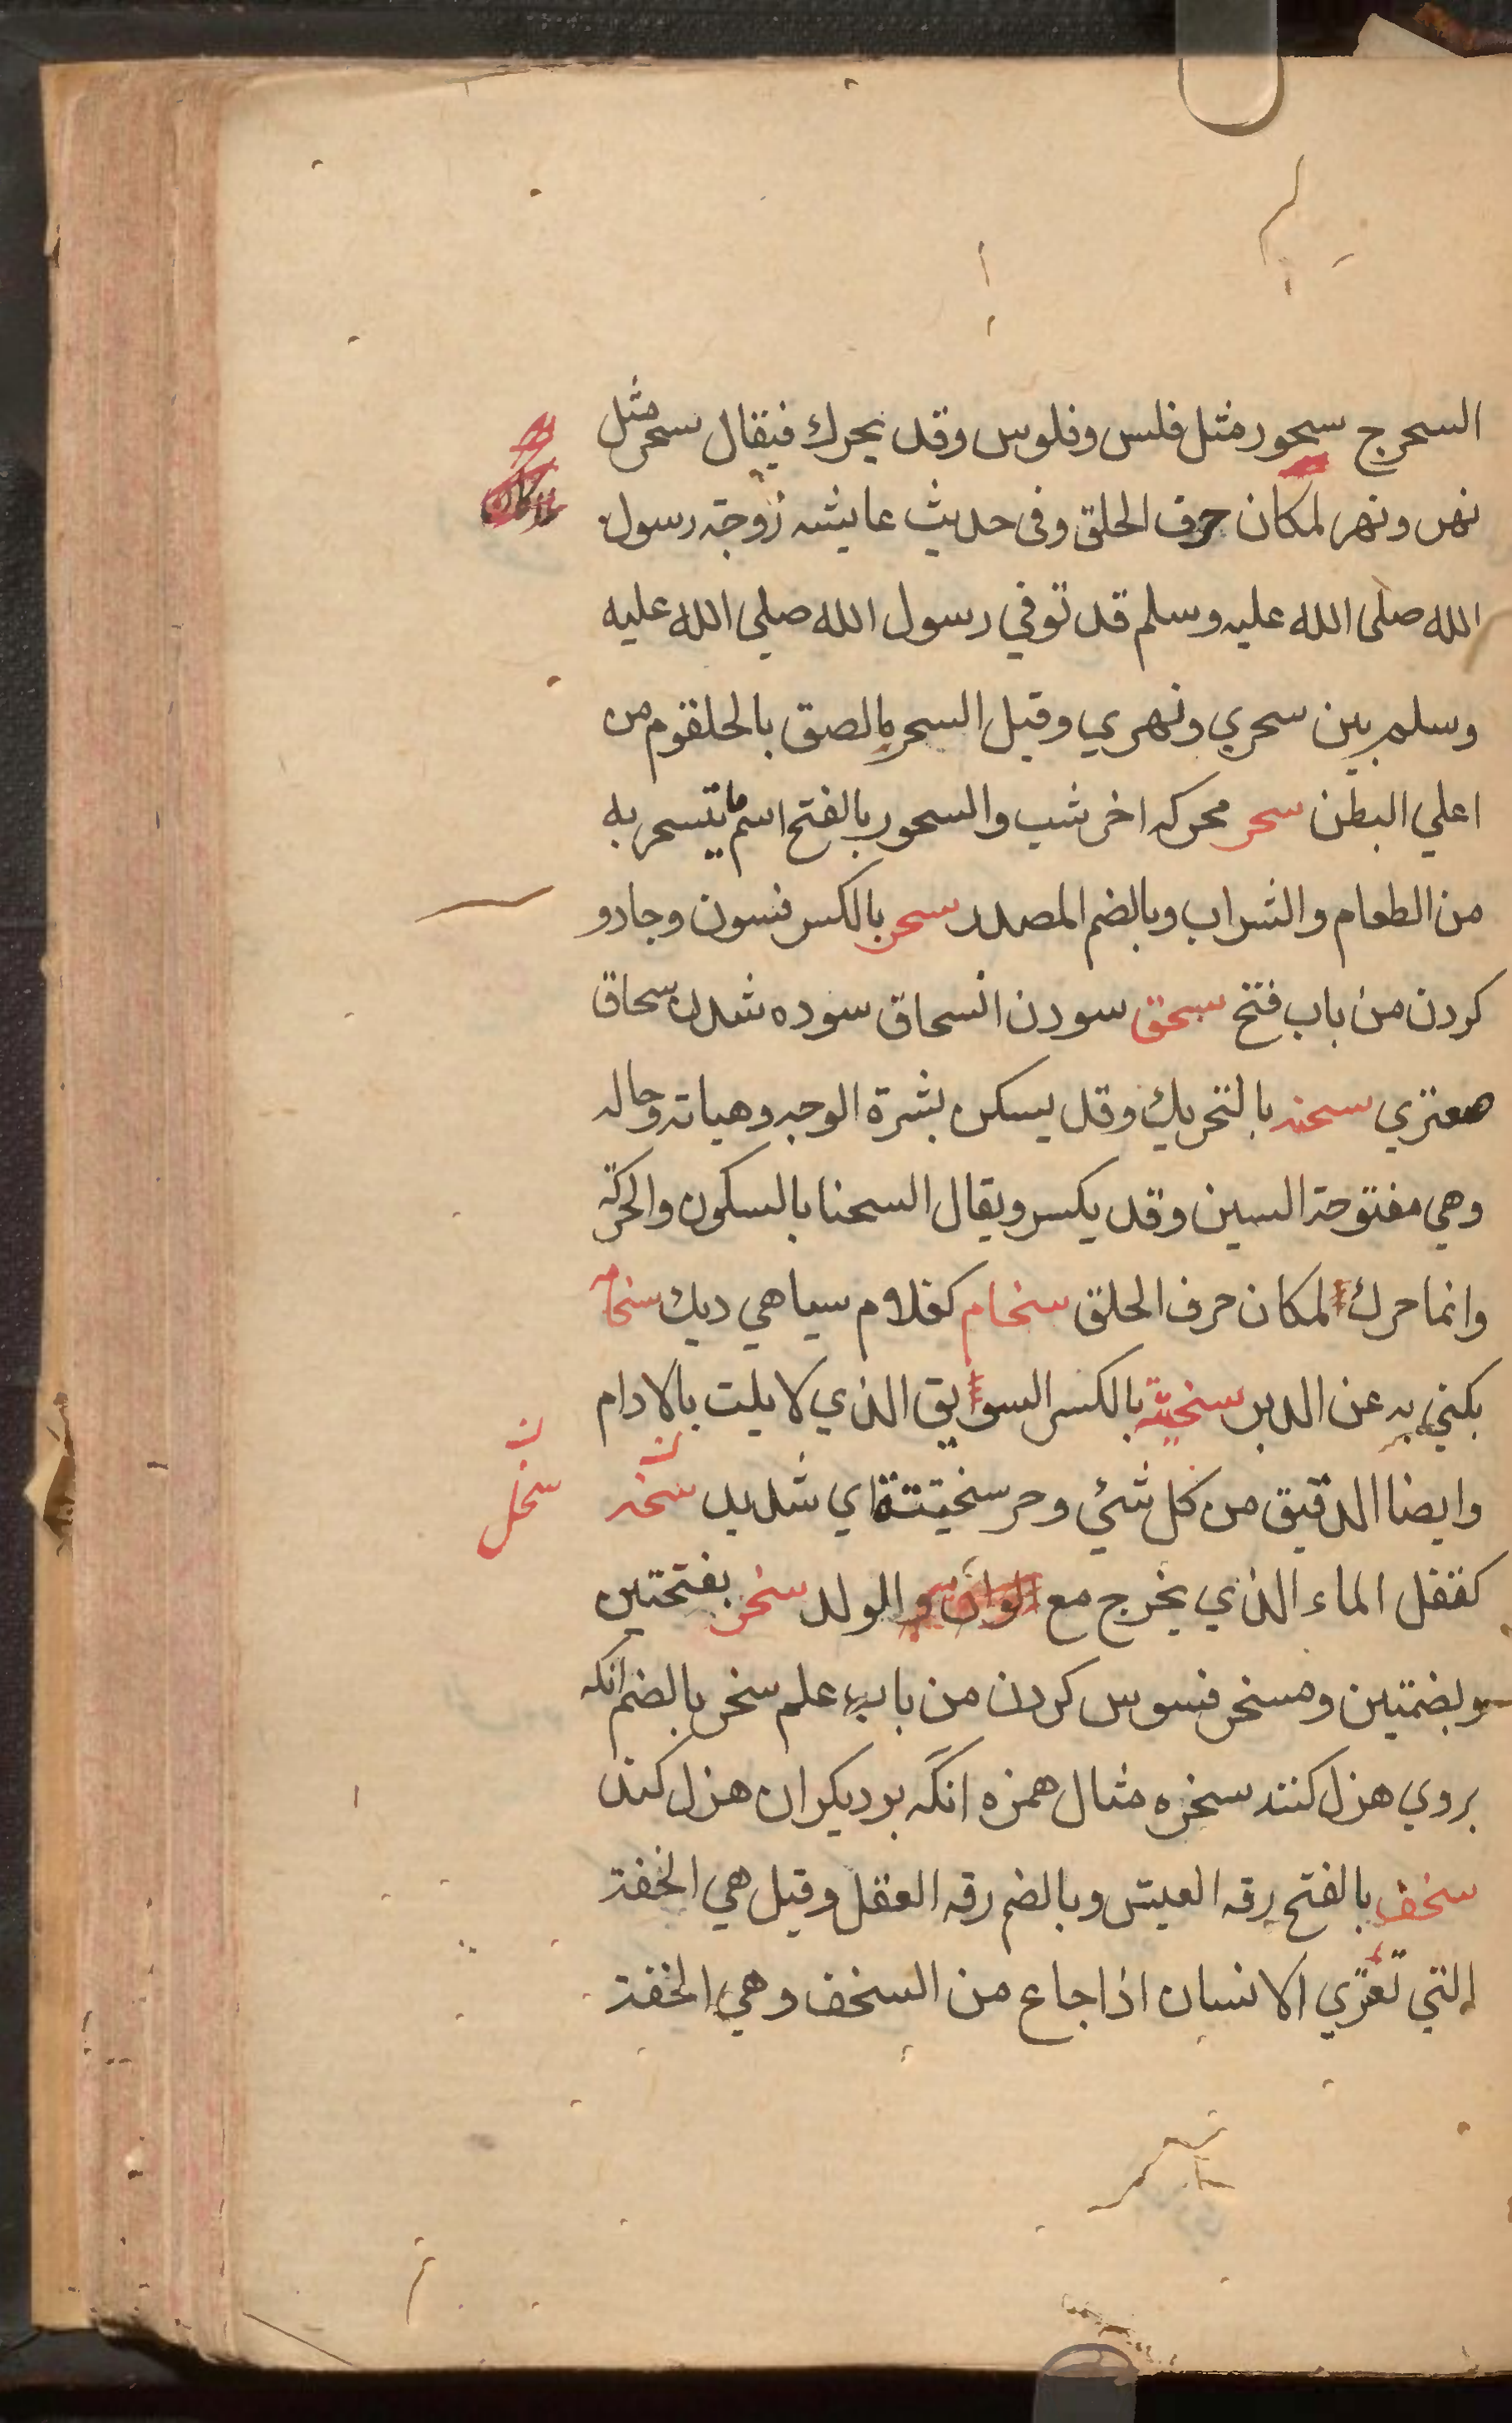 السحر ج سحور مثل فلس وفلوس وقد يحرك فيقال سحر مثل
نهر ونهر لمكان حرف الحلق وفى حديث عايشه زوجة رسول
الله صلى الله عليه وسلم قد توفي رسول الله صلي الله عليه
وسلم بين سحري ونهري وقيل السحر مالصق بالحلقوم من
اعلي البطن سحر محركه اخر شب والسحور بالفتح اسم ما يتسحر به
من الطعام والشراب وبالضم المصدر سحر بالكسر فسون وجادو
كردن من باب فتح سحق سودن انسحاق سوده شدن سحاق
معتزي سحنه بالتحريك وقد يسكن بشرة الوجه وهياته وحاله
وهي مفتوحة السين وقد يكسر ويقال السحنا بالسكون والحركة
وانما حرك لمكان حرف الحلق سخام كغلام سياهي ديك سخام
يكني به عن الدبر سخيتة بالكسر السويق الذي لا يلت بالادام
وايضا الدقيق من كل شئي وحر سخيتتة اي شديد سخد
سخل
كقفل الماء الذي يخرج مع الولد سخر بفتحتين
وبضمتين ومسخر فسوس كردن من باب علم سخر بالضم انكه
بروي هزل كنند سخره مثال همزه انكه بر ديكران هزل كند
سخف بالفتح رقه العيش وبالضم رقه العقل وقيل هي الخفة
التي تعتري الانسان اذا جاع من السخف وهي الخفة